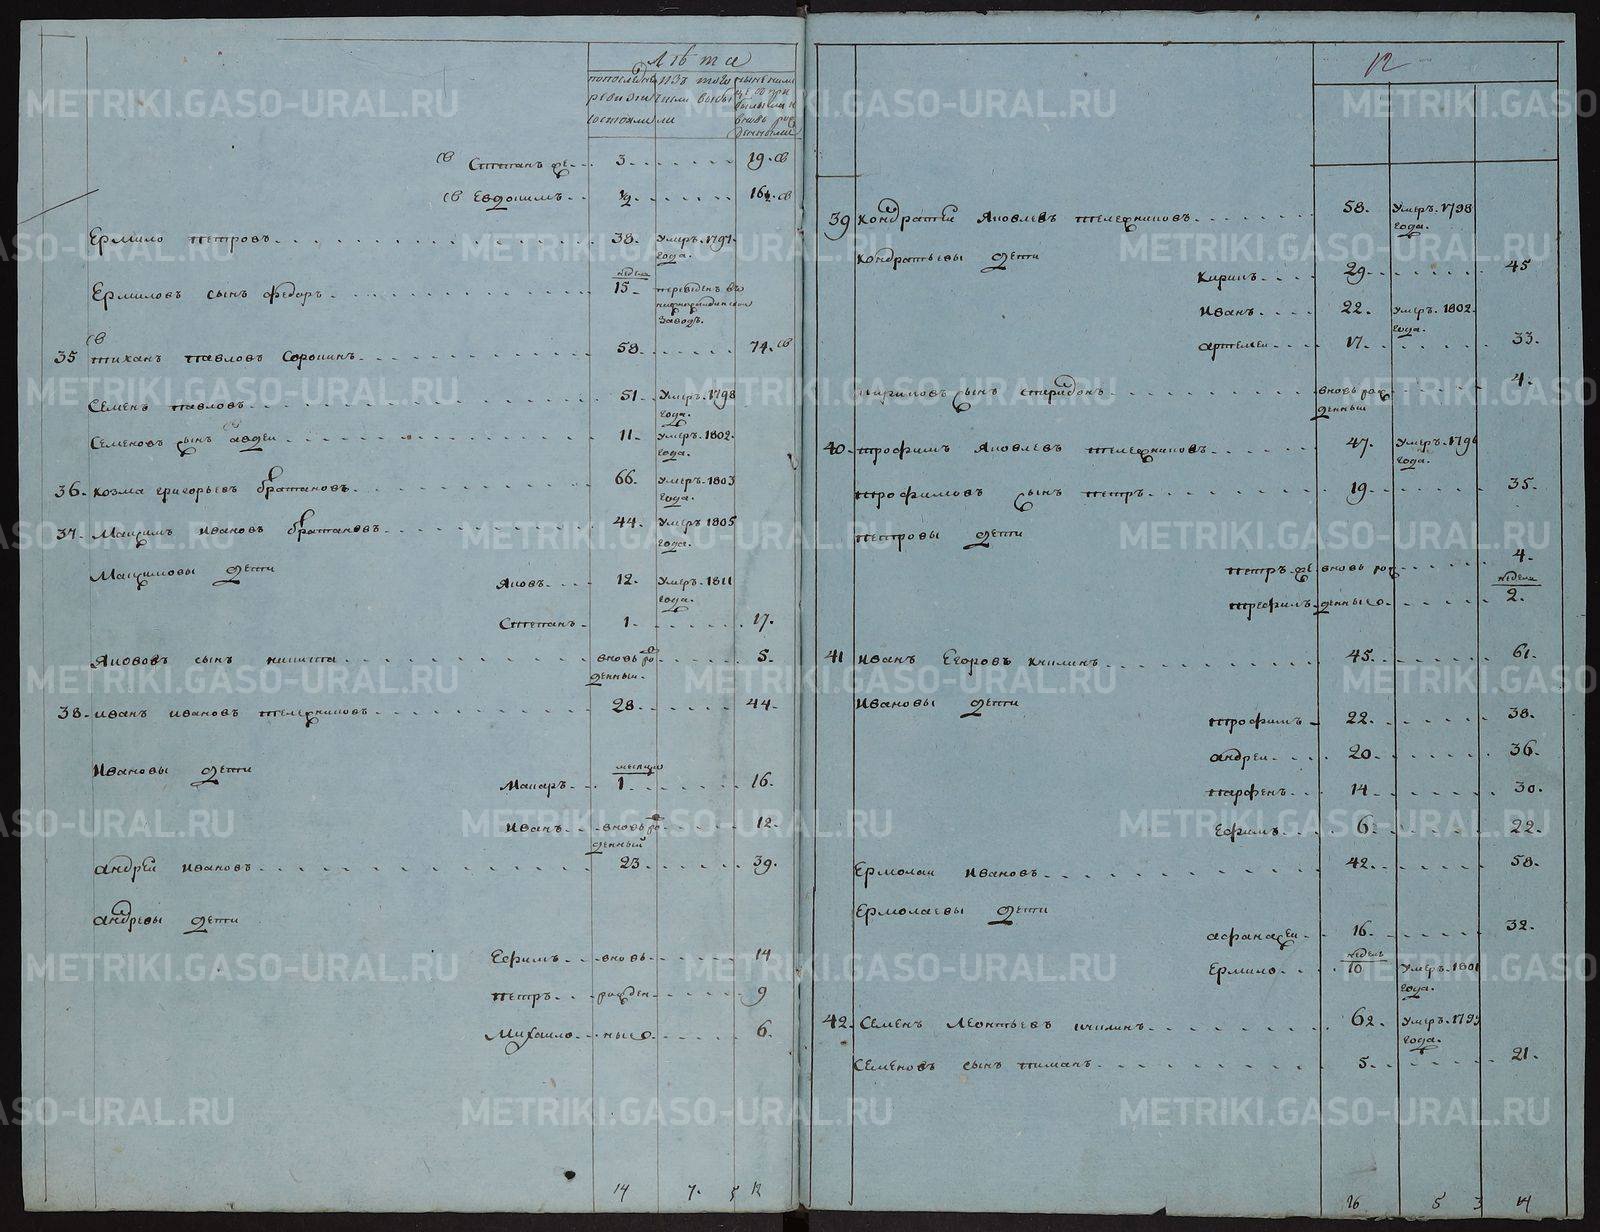 Лѣта
по последней ревизии состояли
изъ того числа выбыли
ныне налицо съ прибылыми и вновь рожденными
св Степанъ же 3. 19. св
св Евдокимъ ½ 16½. св
Ермило Петровъ 38. Умеръ. 1797 года.
Ермиловъ сынъ Федоръ недель 15 переведенъ въ завод.
35 св Тихонъ Павловъ Сорокинъ 58. 74. св
Семенъ Павловъ 51. Умеръ. 1798 года.
Семеновъ сынъ Авдеи 11. Умеръ. 1802. года.
36. Козма Григорьевъ Братановъ 66. Умеръ. 1803 года.
37. Максимъ Ивановъ Братановъ 44. Умеръ 1805 года.
Максимовы дети
Яковъ 12. Умеръ. 1811 года.
Степанъ 1. 17.
Яковов сынъ Никита вновь рожденный. 5.
38. Иванъ Ивановъ Тележниковъ 28. 44.
Ивановы дети
Макаръ месяцъ 1. 16.
Иванъ вновь рожденный 12.
Андрей Ивановъ 23. 39.
Андревы дети
Ефимъ вновь 14
Петръ рожден 9
Михаило ные 6.
14 7. 5 12
12
39 Кондратей Яковлевъ Тележниковъ 58. Умеръ. 1798 года.
Кондратьевы дети
Кирилъ 29. 45
Иванъ 22. Умеръ. 1802. года.
Артемеи 17. 33.
Кириловъ сынъ Спиридонъ вновь рожденный 4.
40. Трофимъ Яковлевъ Тележниковъ 47. Умеръ. 1796 года.
Трофимовъ сынъ Петръ 19. 35.
Петровы дети
Петръ же вновь рож 4.
Трефилъ денные недели 2.
41 Иванъ Егоровъ Кчилинъ 45. 61.
Ивановы дети
Трофимъ 22. 38.
Андреи 20. 36.
Парфенъ 14 30.
Ефимъ 6. 22.
Ермолаи Ивановъ 42. 58.
Ермолаевы дети
Афанасеи 16. 32.
Ермило недель 10 Умеръ. 1801 года.
42. Семенъ Леонтьевъ Кчилинъ 62. Умеръ. 1799 года.
Семеновъ сынъ Пиманъ 5. 21.
16 5 3 14
METRIKI.GASO-URAL.RU